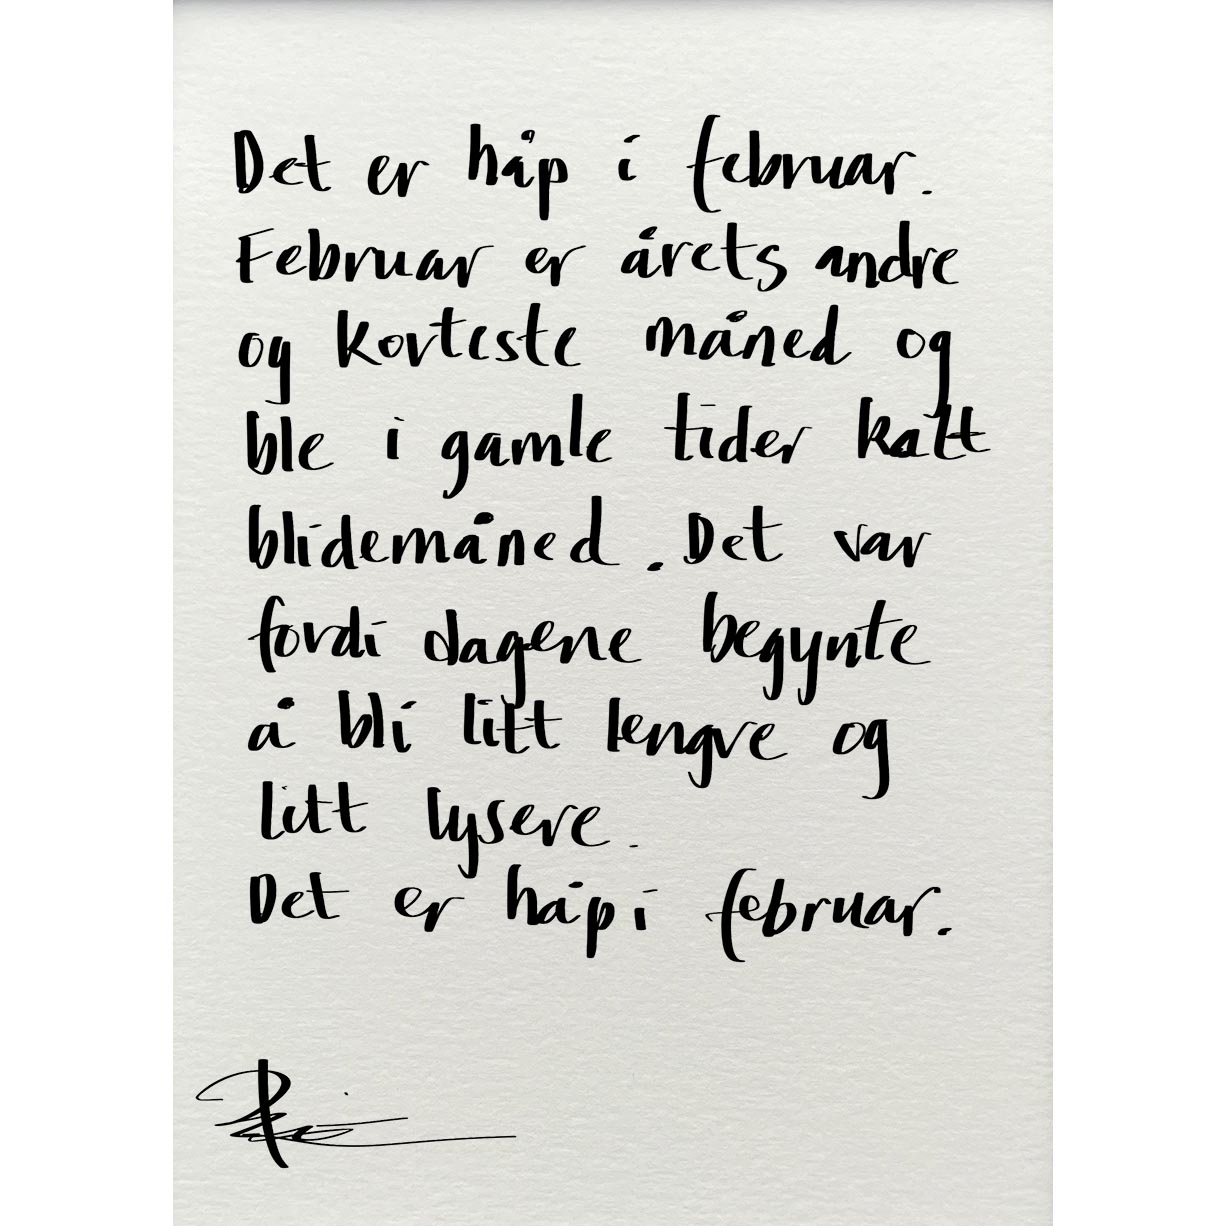 Det er håp i februar.
Februar er årets andre
og korteste måned og
ble i gamle tider kalt
blidemåned. Det var
fordi dagene begynte
å bli litt lengre og
litt lysere.
Det er håp i februar.